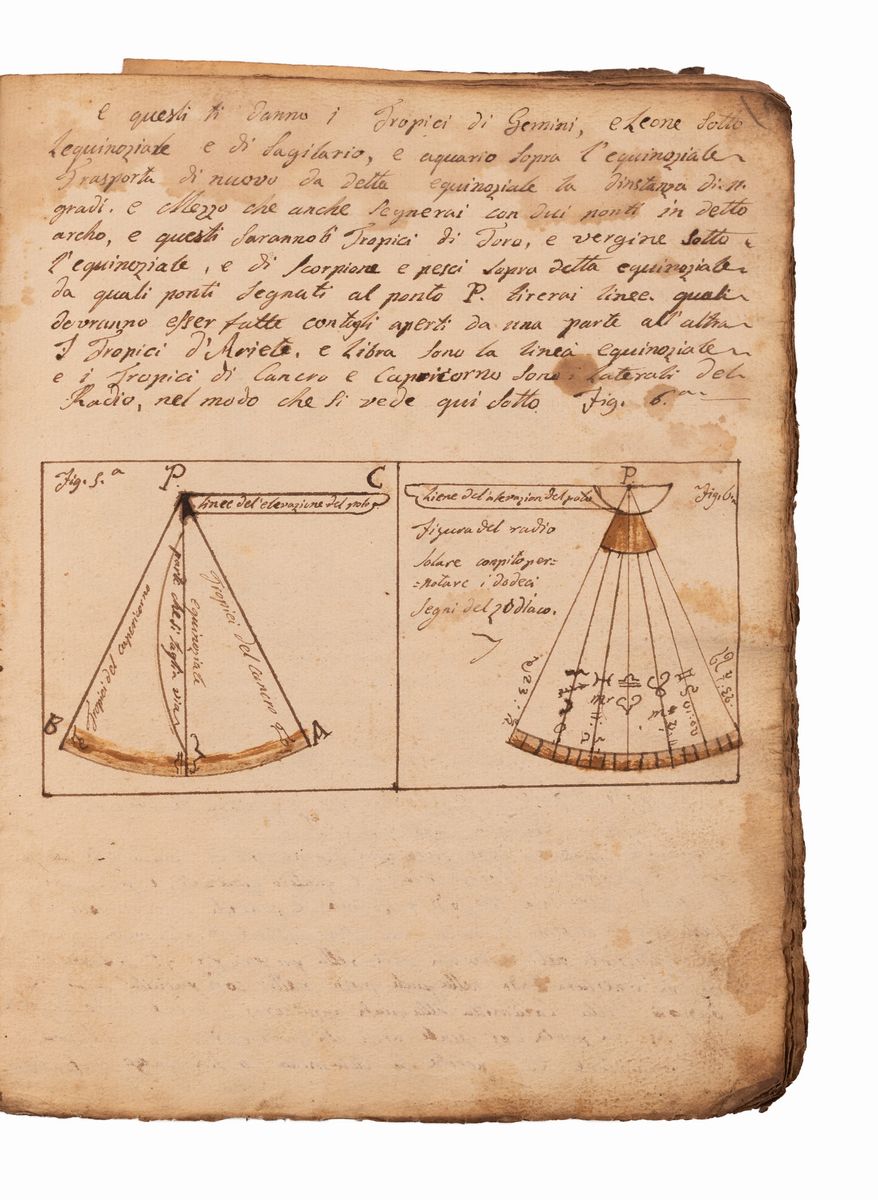 e questi ti danno i Tropici di Gemini, e Leone sotto
Lequinoziale e di Sagitario, e aquario sopra l'equinoziale
Trasporta di nuovo da detta equinoziale la distanza di 11.
gradi. e Mezzo che anche segnerai con dui ponti in detto
archo, e questi Saranno li Tropici di Toro, e vergine sotto
l'equinoziale, e di Scorpione e pesci sopra detta equinoziale
da quali ponti segnati al ponto P. tirerai linee quali
dovranno esser fatte con tagli aperti da una parte all'altra
I Tropici d'Ariete. e Libra sono la linea equinoziale
e i Tropici di Cancro e Capricorno sono i laterali del
Radio, nel modo che si vede qui sotto Fig. 6.a
Fig. 5.a
P.
C
linee del'elevazione del polo
Tropici del capericorno
parte che si taglia via
equinoziale
Tropici del cancro
B
A
P
Liene del'alevazion del polo
Fig. 6.a
Figura del radio
Solare conpito per=
=notare i dodeci
Segni del zodiaco.
♑ 23
♓
♎
♊